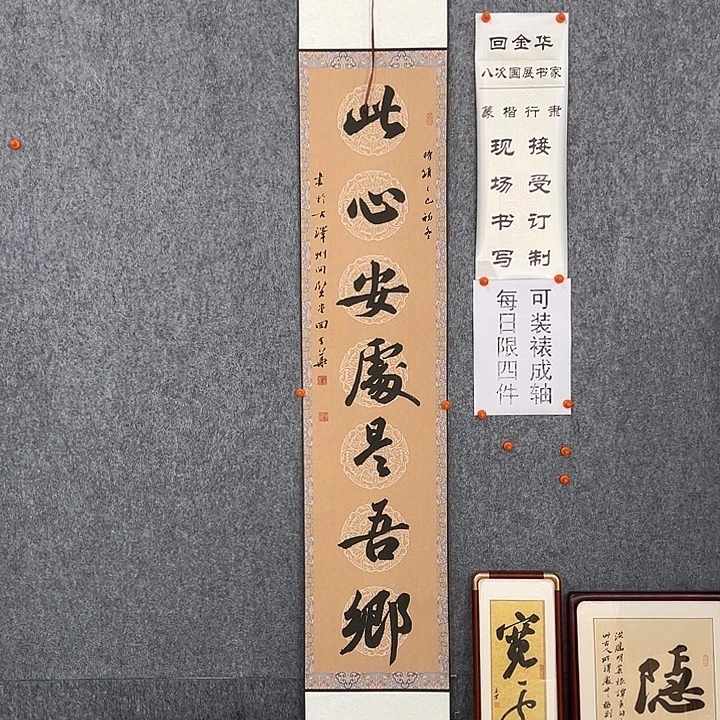 此心安處是吾鄉
時維乙巳初冬
書於古澤州問賢堂回金華
回金华
八次国展书家
篆楷行隶
接受订制
现场书写
可装裱成轴
每日限四件
寬
隱